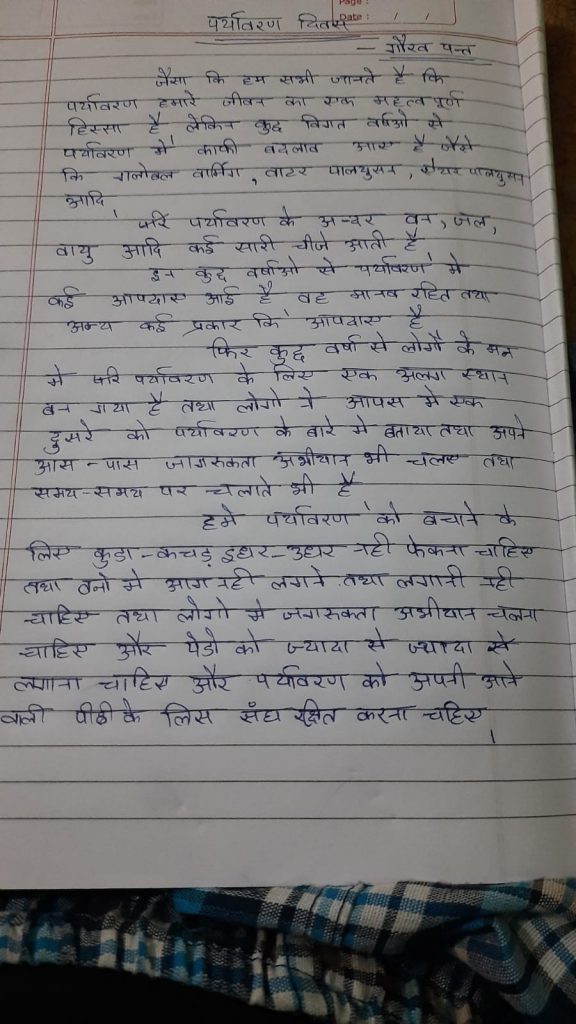 Page :
Date : / /
पर्यावरण दिवस
— गौरव पन्त
जैसा कि हम सभी जानते है कि
पर्यावरण हमारे जीवन का एक महत्व पूर्ण
हिस्सा है लेकिन कुछ विगत वर्षाओ से
पर्यावरण में काफी बदलाव आए है जैसे
कि ग्लोबल वार्मिंग, वाटर पालयुसन, ऐयर पालयुसन
आदि।
परि पर्यावरण के अन्दर वन, जल,
वायु आदि कई सारी चीजे आती है
इन कुछ वर्षाओ से पर्यावरण मे
कई आपदाए आई है वह मानव रहित तथा
अन्य कई प्रकार कि आपदाए है
फिर कुछ वर्षो से लोगों के मन
मे परि पर्यावरण के लिए एक अलग स्थान
बन गया है तथा लोगो ने आपस मे एक
दुसरे को पर्यावरण के बारे मे बताया तथा अपने
आस-पास जागरुकता अभीयान भी चलाए तथा
समय-समय पर चलाते भी है
हमे पर्यावरण को बचाने के
लिए कुडा-कचड़ इधर-उधर नही फेकना चाहिए
तथा वनो मे आग नही लगने तथा लगानी नही
चाहिए तथा लोगो मे जगरुकता अभीयान चलना
चाहिए और पेडो को ज्यादा से ज्यादा से
लगाना चाहिए और पर्यावरण को अपनी आने
वाली पीढी के लिए संघ रक्षित करना चहिए
।